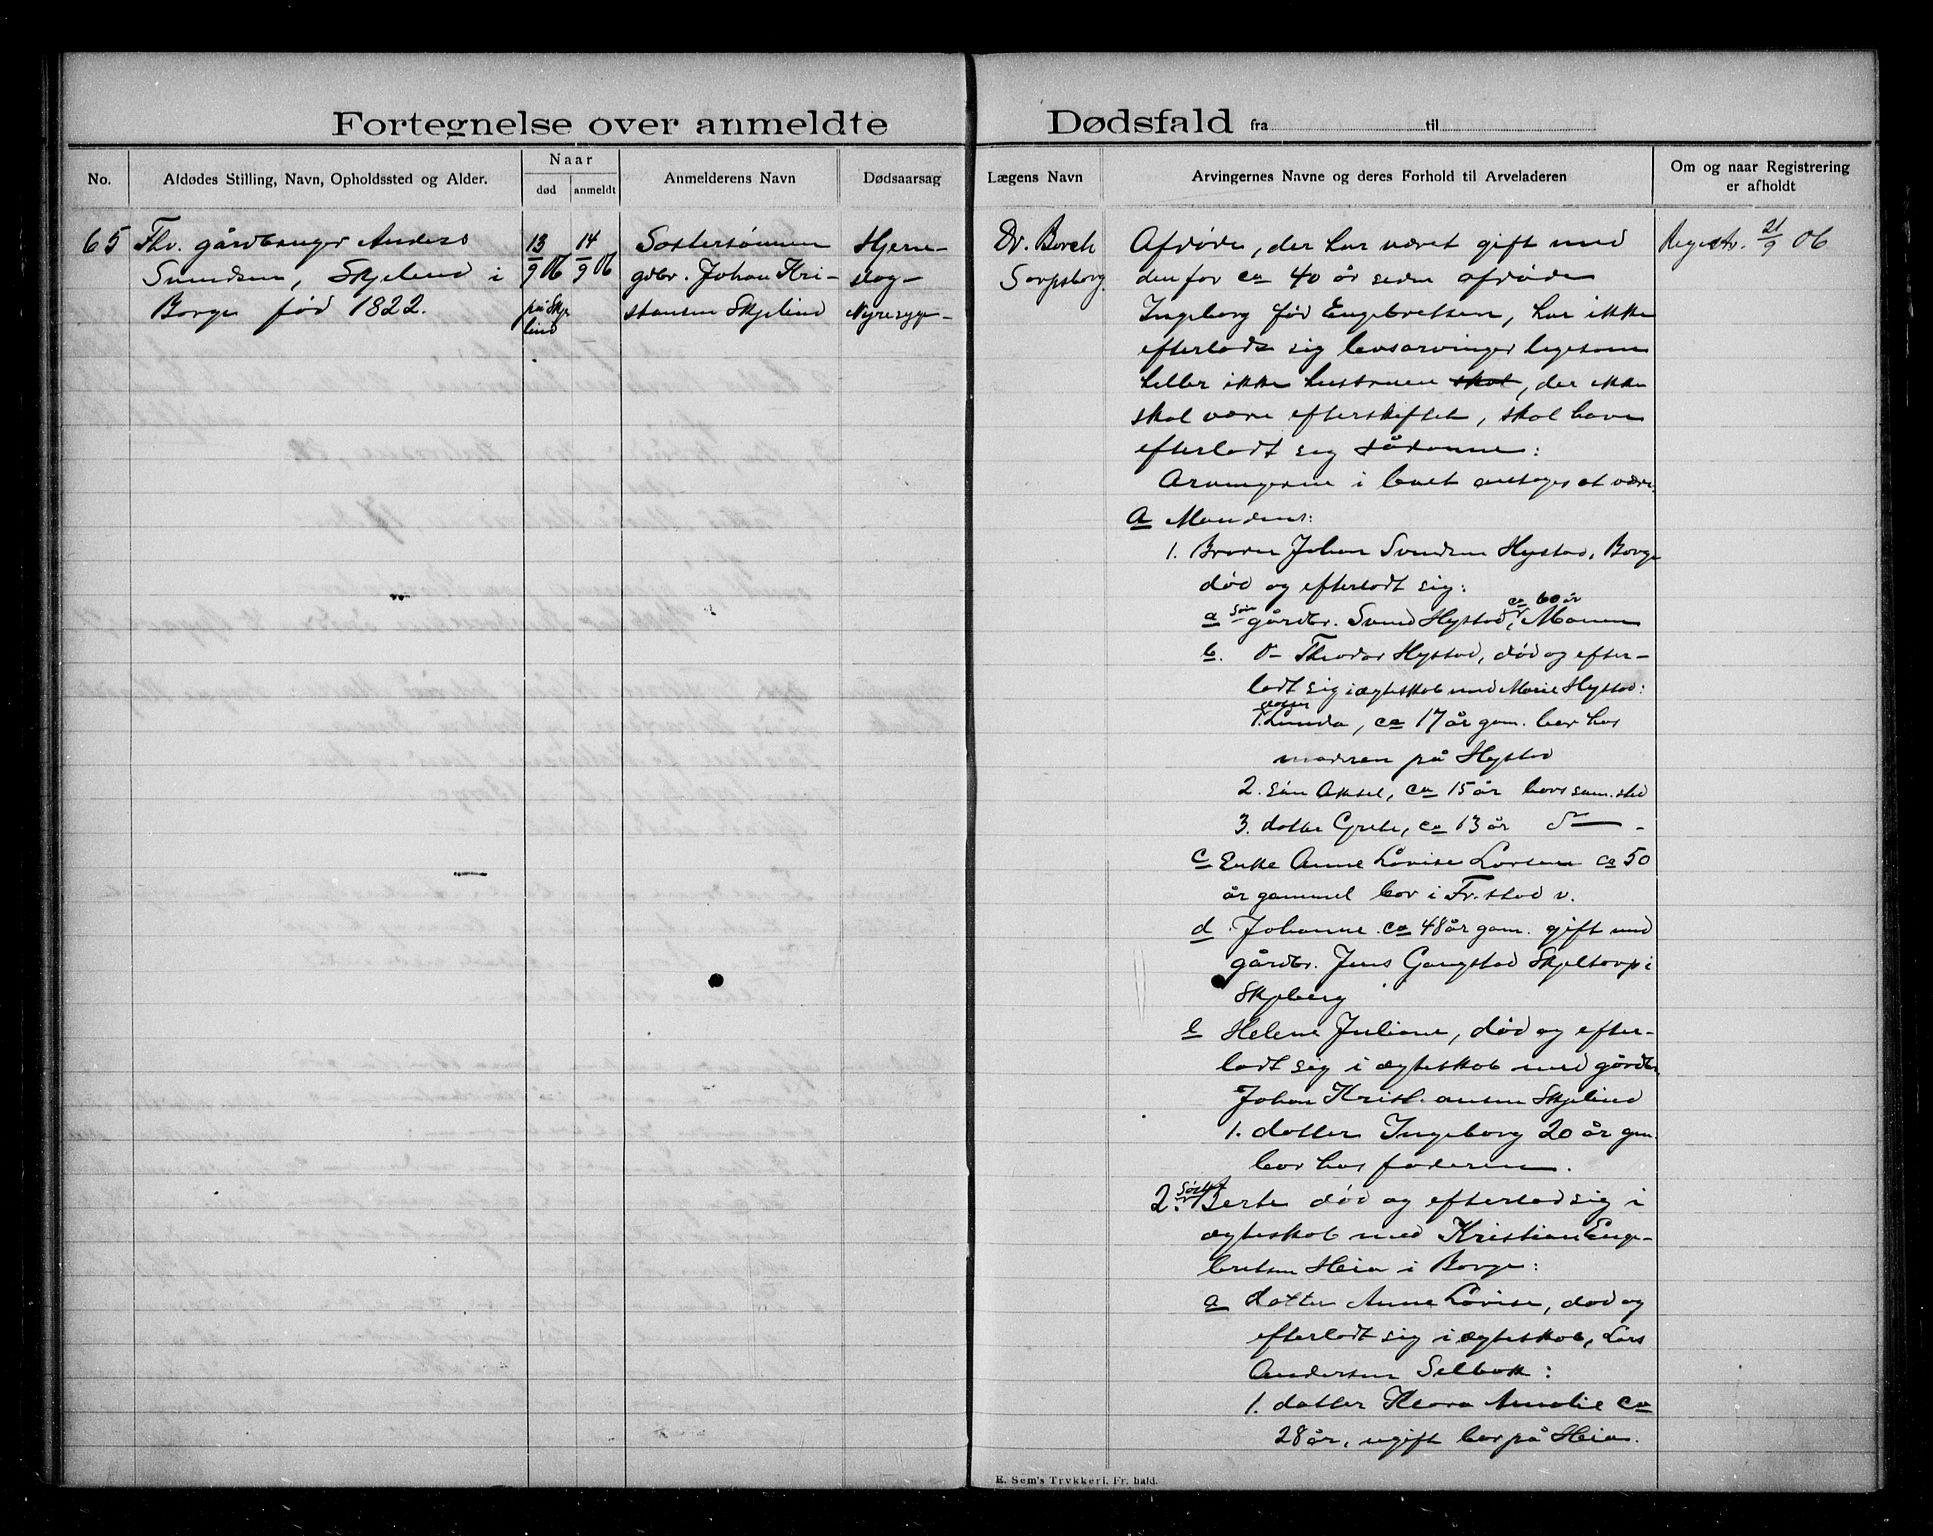 Fortegnelse over anmeldte Dødsfald fra til
No.
Afdødes Stilling, Navn, Opholdssted og Alder.
Naar
død
anmeldt
Anmelderens Navn
Dødsaarsag
Lægens Navn
Arvingernes Navne og deres Forhold til Arveladeren
Om og naar Registrering
er afholdt
65
Fhv. gårdbruger Anders
Svendsen, Skjelind i
Borge født 1822.
13/9 06
på Skje
lind
14/9 06
Søstersønnen
gdbr. Johan Kri-
stiansen Skjelind
Hjerne-
slag-
Nyresyge-
Dr. Borch
Sarpsborg.
Afdøde, der har været gift med
den for ca 40 år siden afdøde
Ingeborg født Engebretsen, har ikke
efterladt sig livsarvinger ligesom
heller ikke hustruen skal, der ikke
skal være efterskiftet, skal have
efterladt sig sådanne:
Arvingerne i boet antages at være
a Mandens:
1. Broren Johan Svendsen Hystad, Borge
død og efterladt sig:
a søn gårdbr. Svend Hystad, ca 60 år
b. do Theodor Hystad, død og efter-
ladt sig i ægteskab med Marie Hystad:
1. datter Lunda, ca 17 år gam. bor hos
moderen på Hystad
2. søn Aksel, ca 15 år bor sam. sted
3. datter Grete, ca 13 år do -
c Enke Anne Lovise Larsen ca 50
år gammel bor i Fr.stad v.
d. Johanne ca 48 år gam. gift med
gårdbr. Jens Gangstad Skjeltorp i
Skjeberg
e Helene Juliane, død og efter-
ladt sig i ægteskab med gårdbr.
Johan Kristiansen Skjelind
1. datter Ingeborg 20 år gam.
bor hos faderen.
2. Søster Berte død og efterlad sig i
ægteskab med Kristian Enge-
bretsen Heia i Borge:
a datter Anne Lovise, død og
efterladt sig i ægteskab, Lars
Andersen Selbak:
1. datter Klara Amalie ca
28 år, ugift bor på Heia.
Registr. 21/9 06
E. Sem's Trykkeri, Fr. hald.